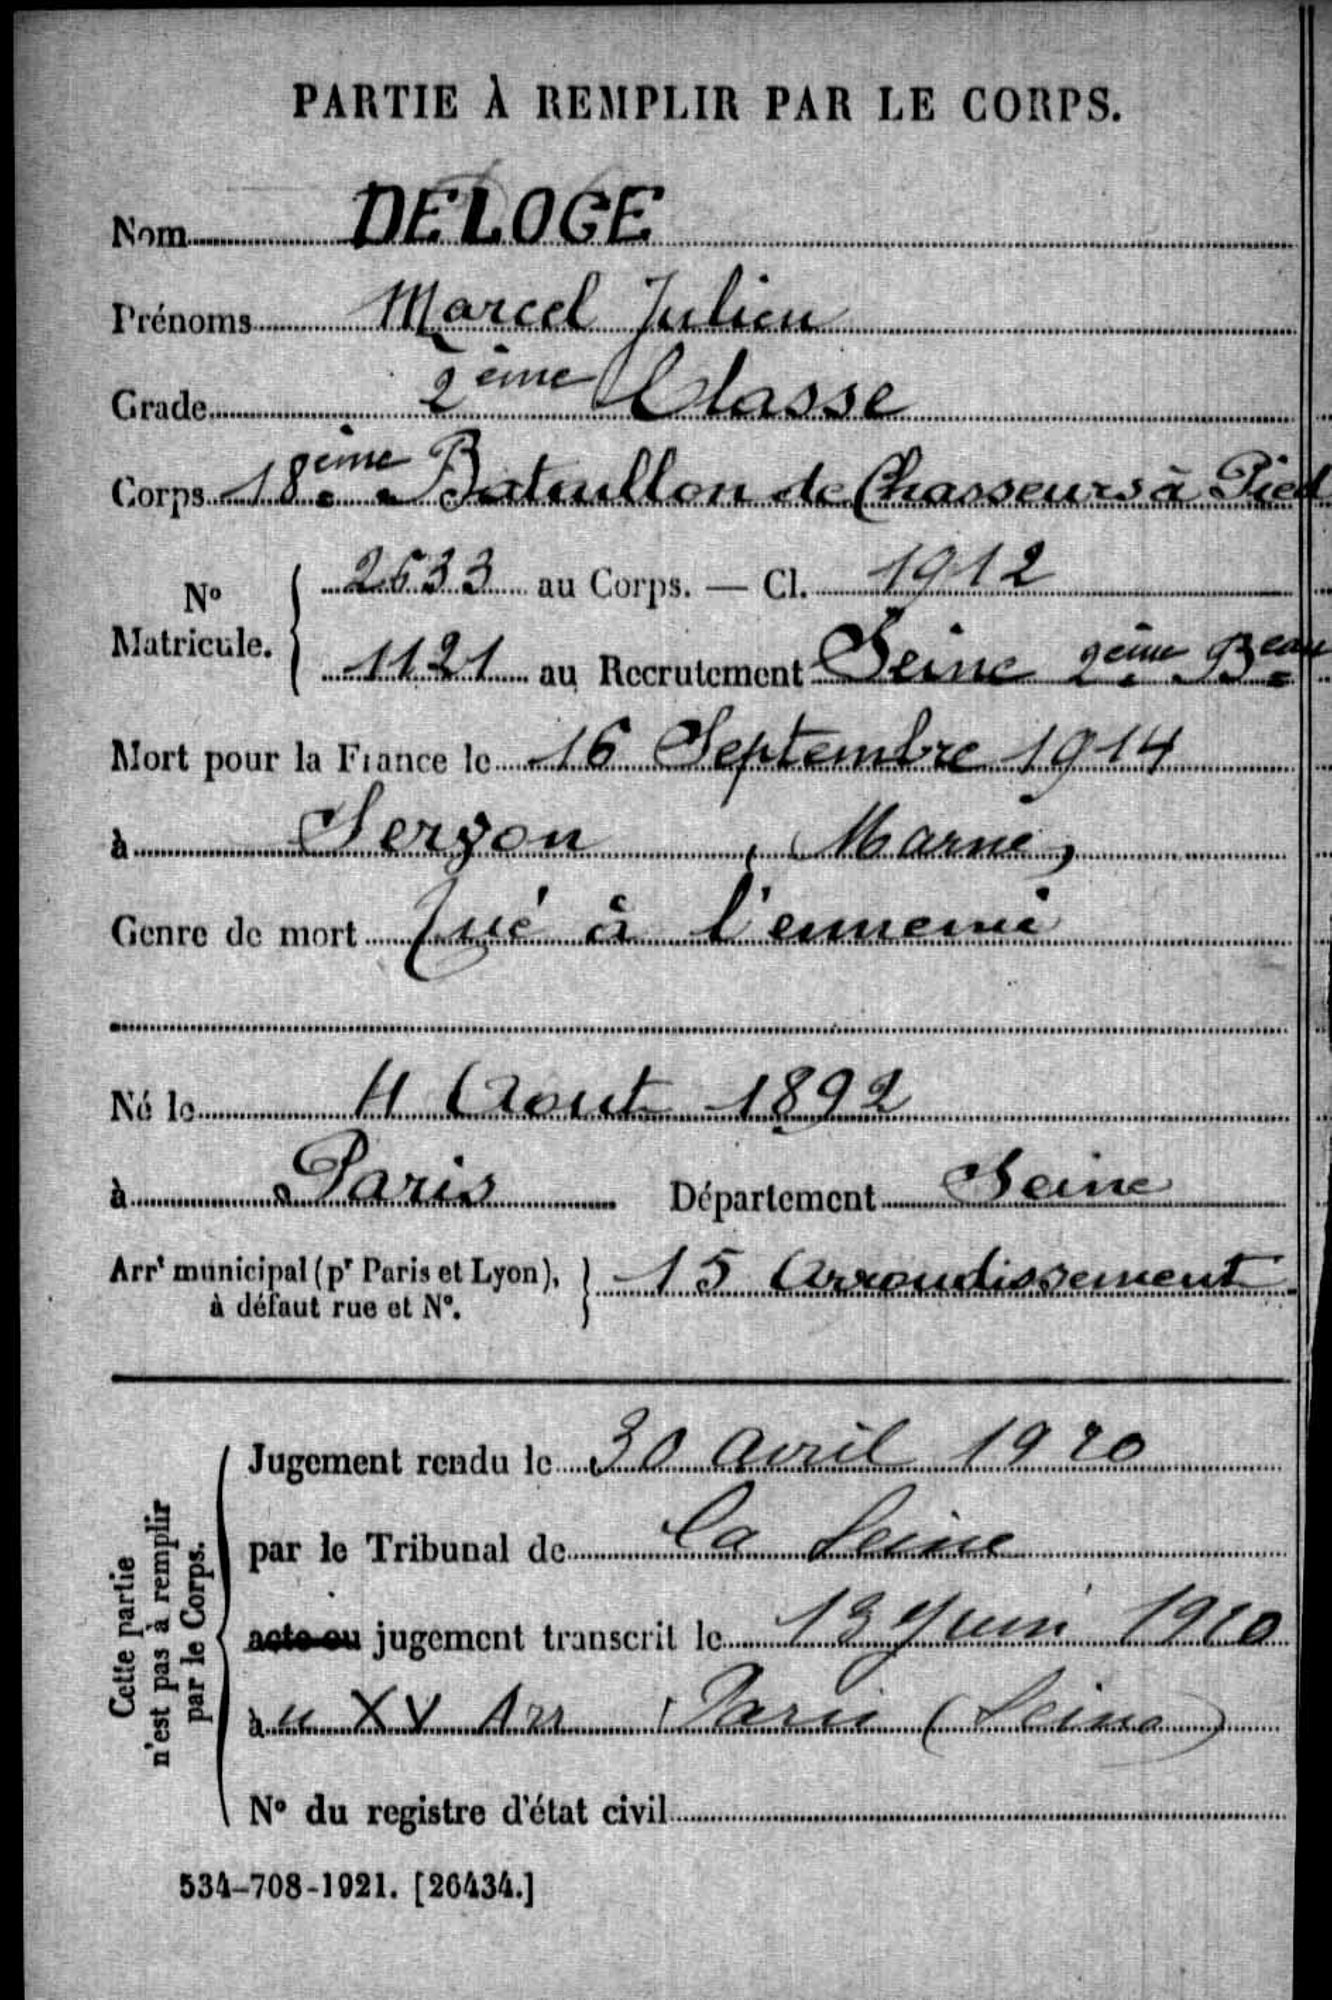 PARTIE À REMPLIR PAR LE CORPS.
Nom DELOGE
Prénoms Marcel Julien
Grade 2ème Classe
Corps 18ème Bataillon de Chasseurs à Pied
No Matricule. 2633 au Corps. — Cl. 1912
1121 au Recrutement Seine 2ème Beau
Mort pour la France le 16 Septembre 1914
à Servon, Marne,
Genre de mort Tué à l'ennemi
Né le 4 Aout 1892
à Paris Département Seine
Arrt municipal (pr Paris et Lyon), 15 Arrondissement
à défaut rue et No.
Cette partie
n'est pas à remplir
par le Corps.
Jugement rendu le 30 avril 1920
par le Tribunal de la Seine
acte ou jugement transcrit le 13 Juin 1920
au XV Arr Paris (Seine)
No du registre d'état civil
534-708-1921. [26434.]